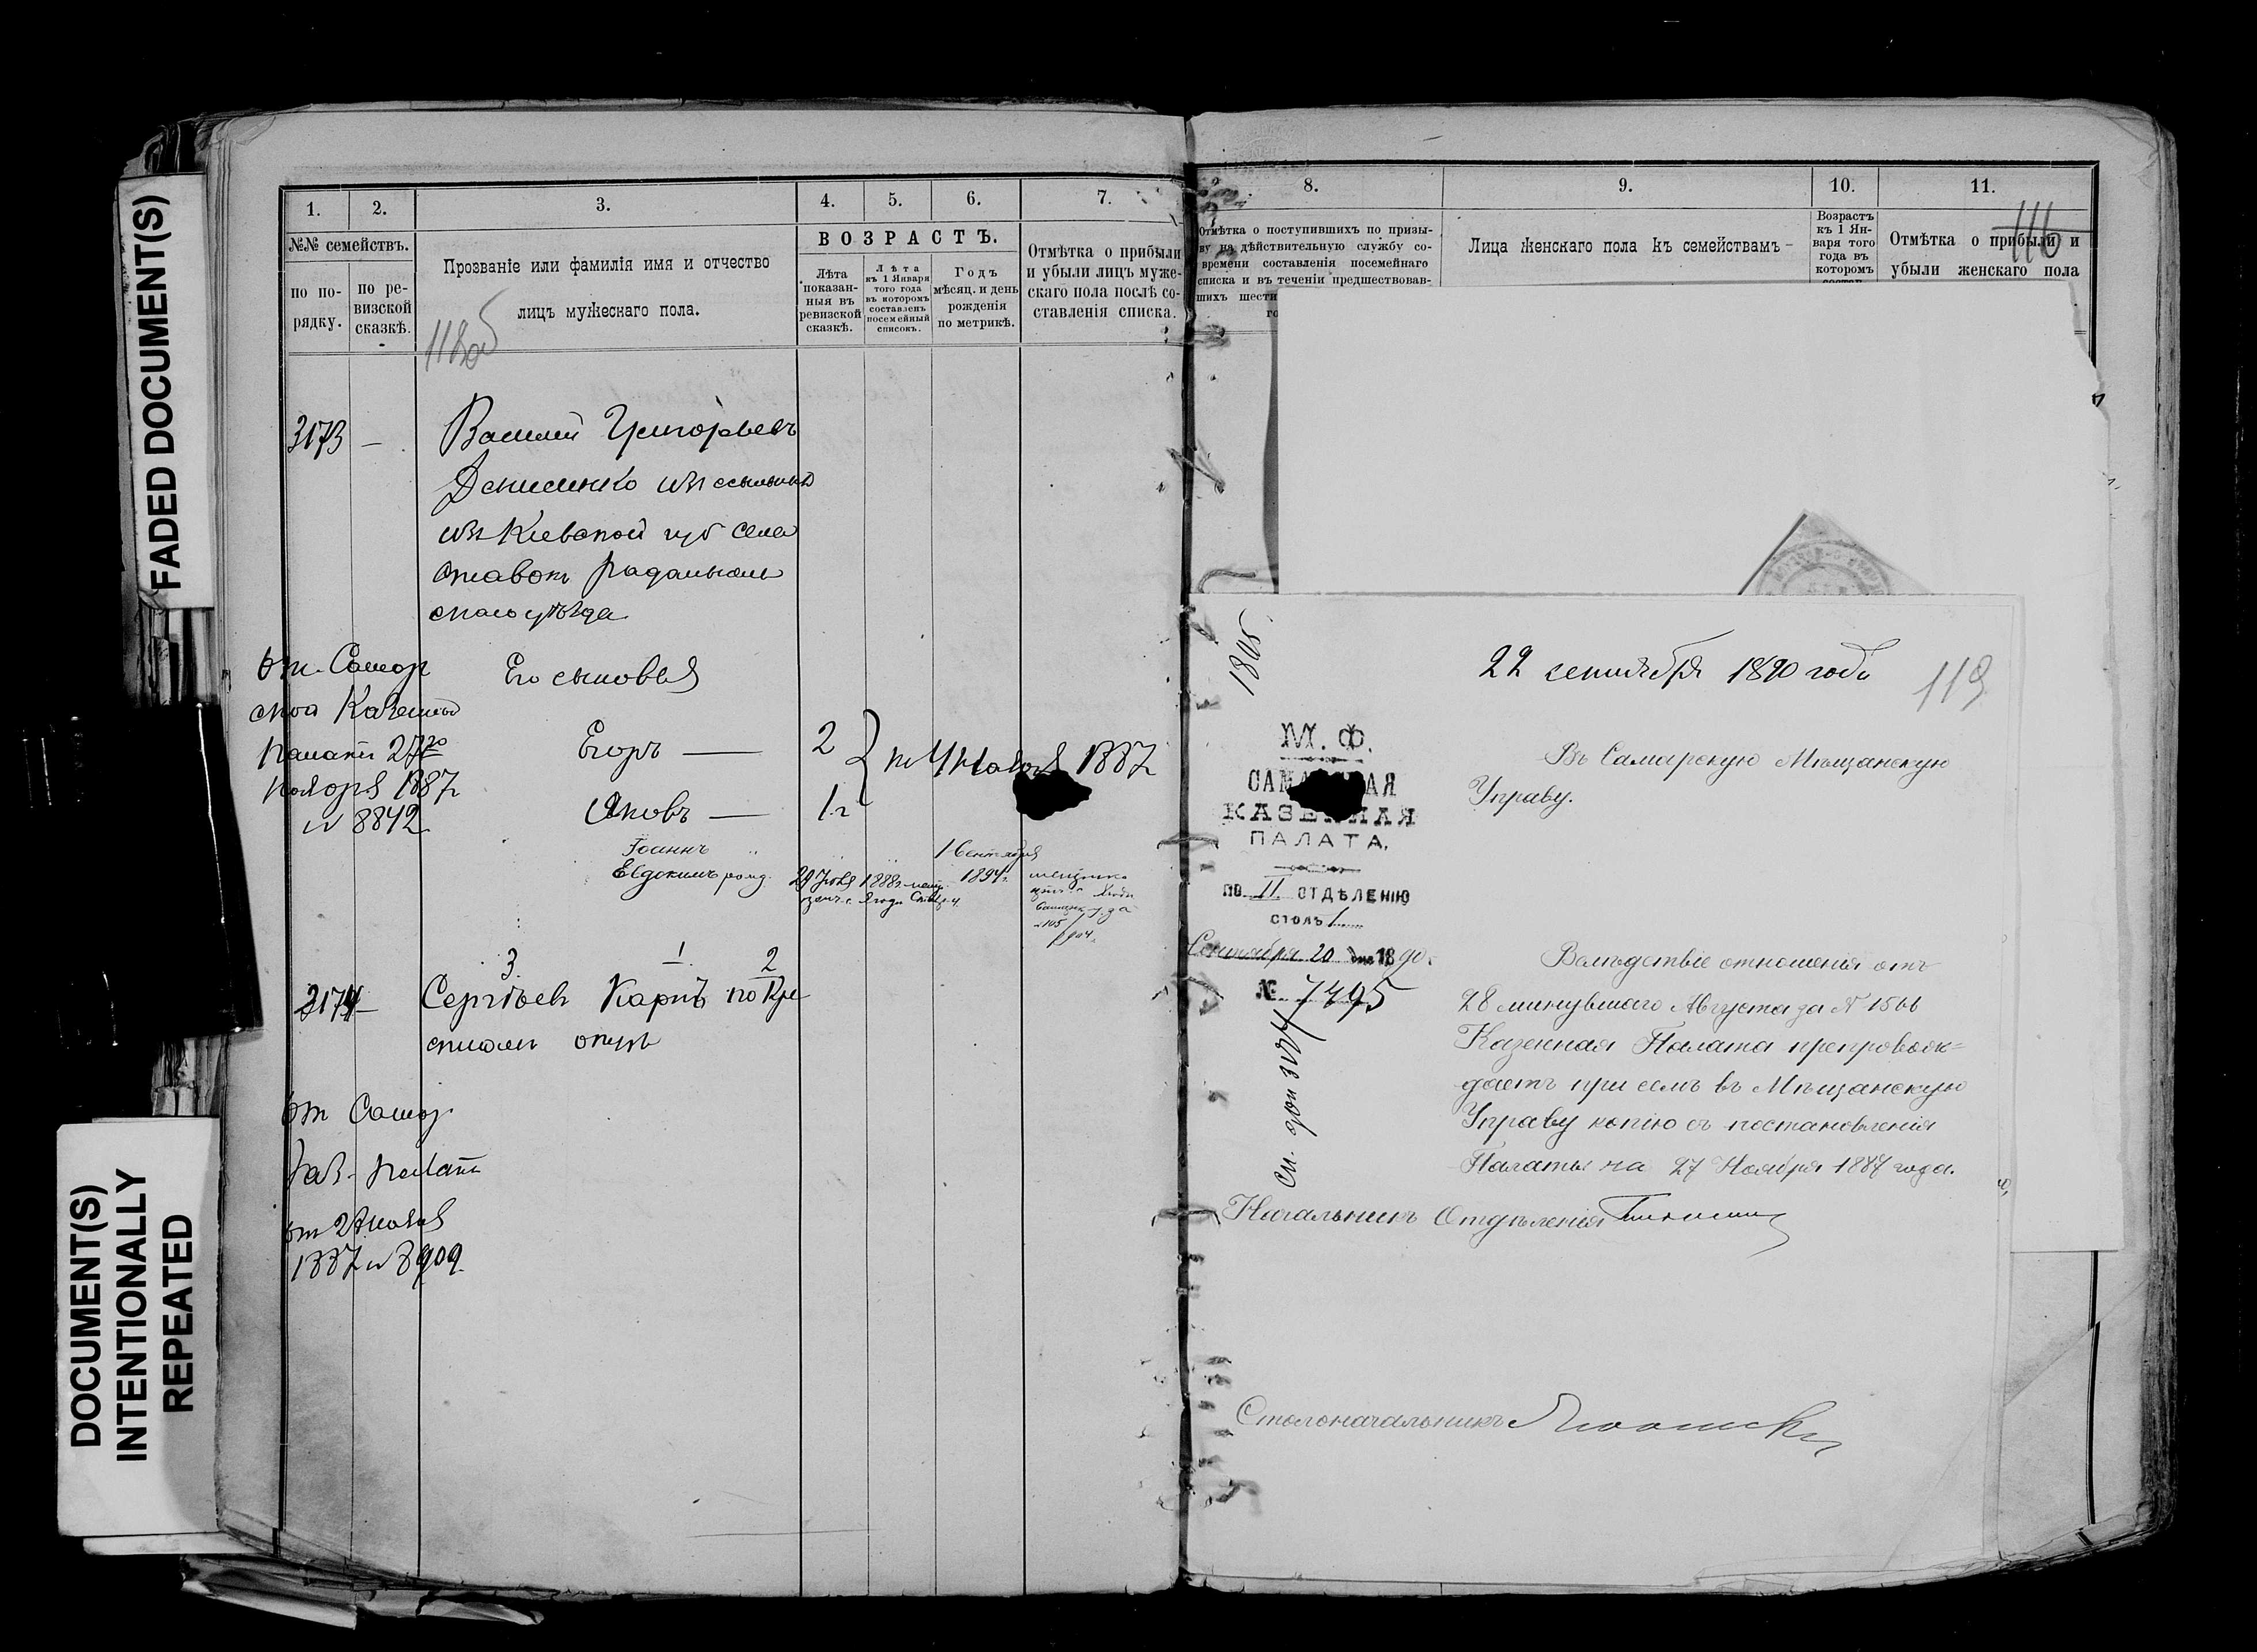 FADED DOCUMENT(S)
DOCUMENT(S)
INTENTIONALLY
REPEATED
1.
2.
3.
4.
5.
6.
7.
№№ семействъ.
по по-
рядку.
по ре-
визской
сказкѣ.
Прозваніе или фамилія имя и отчество
лицъ мужескаго пола.
118об
ВОЗРАСТЪ.
Лѣта
показан-
ныя въ
ревизской
сказкѣ.
Лѣта
къ 1 Января
того года
въ которомъ
составленъ
посемейный
списокъ.
Годъ
мѣсяц. и день
рожденія
по метрикѣ.
Отмѣтка о прибыли
и убыли лицъ муже-
скаго пола послѣ со-
ставленія списка.
3173 —
Василій Григорьевъ
Денисенко изъ ссыльныхъ
изъ Кіевской губ села
Ставокъ Радомысль
скаго уѣзда
От. Самар
ской Казенной
Палаты 27го
Ноября 1887г
№ 8842
Его сыновья
Егоръ — 2
Яковъ — 1 г
1887
Іоаннъ
1 Сентября
1894г.
Евдокимъ рожд.
29 1888г.
1904г.
3 1 2
3174 —
Сергѣевъ Карпъ по Кре
стном отцѣ
От Самар.
Каз. Палаты
от 27 Нояб
1887 № 8909
8.
9.
10.
11.
Отмѣтка о поступившихъ по призы-
ву на дѣйствительную службу со-
времени составленія посемейнаго
списка и въ теченіи предшествовав-
шихъ шести
го
Лица женскаго пола къ семействамъ —
Возрастъ
къ 1 Ян-
варя того
года въ
которомъ
Отмѣтка о прибыли и
убыли женскаго пола
116
22 сентября 1890 года
119
М. Ф.
САМАРСКАЯ
КАЗЕННАЯ
ПАЛАТА.
ПО II ОТДѢЛЕНІЮ
столъ 1
Сентября 20 дня 1890.
№ 7495
См. при 3174
Въ Самарскую Мѣщанскую
Управу.
Вслѣдствіе отношенія отъ
28 минувшаго Августа за № 1566
Казенная Палата препровож=
даетъ при семъ въ Мѣщанскую
Управу копію съ постановленія
Палаты на 27 Ноября 1887 года.
Начальникъ Отдѣленія
Столоначальникъ